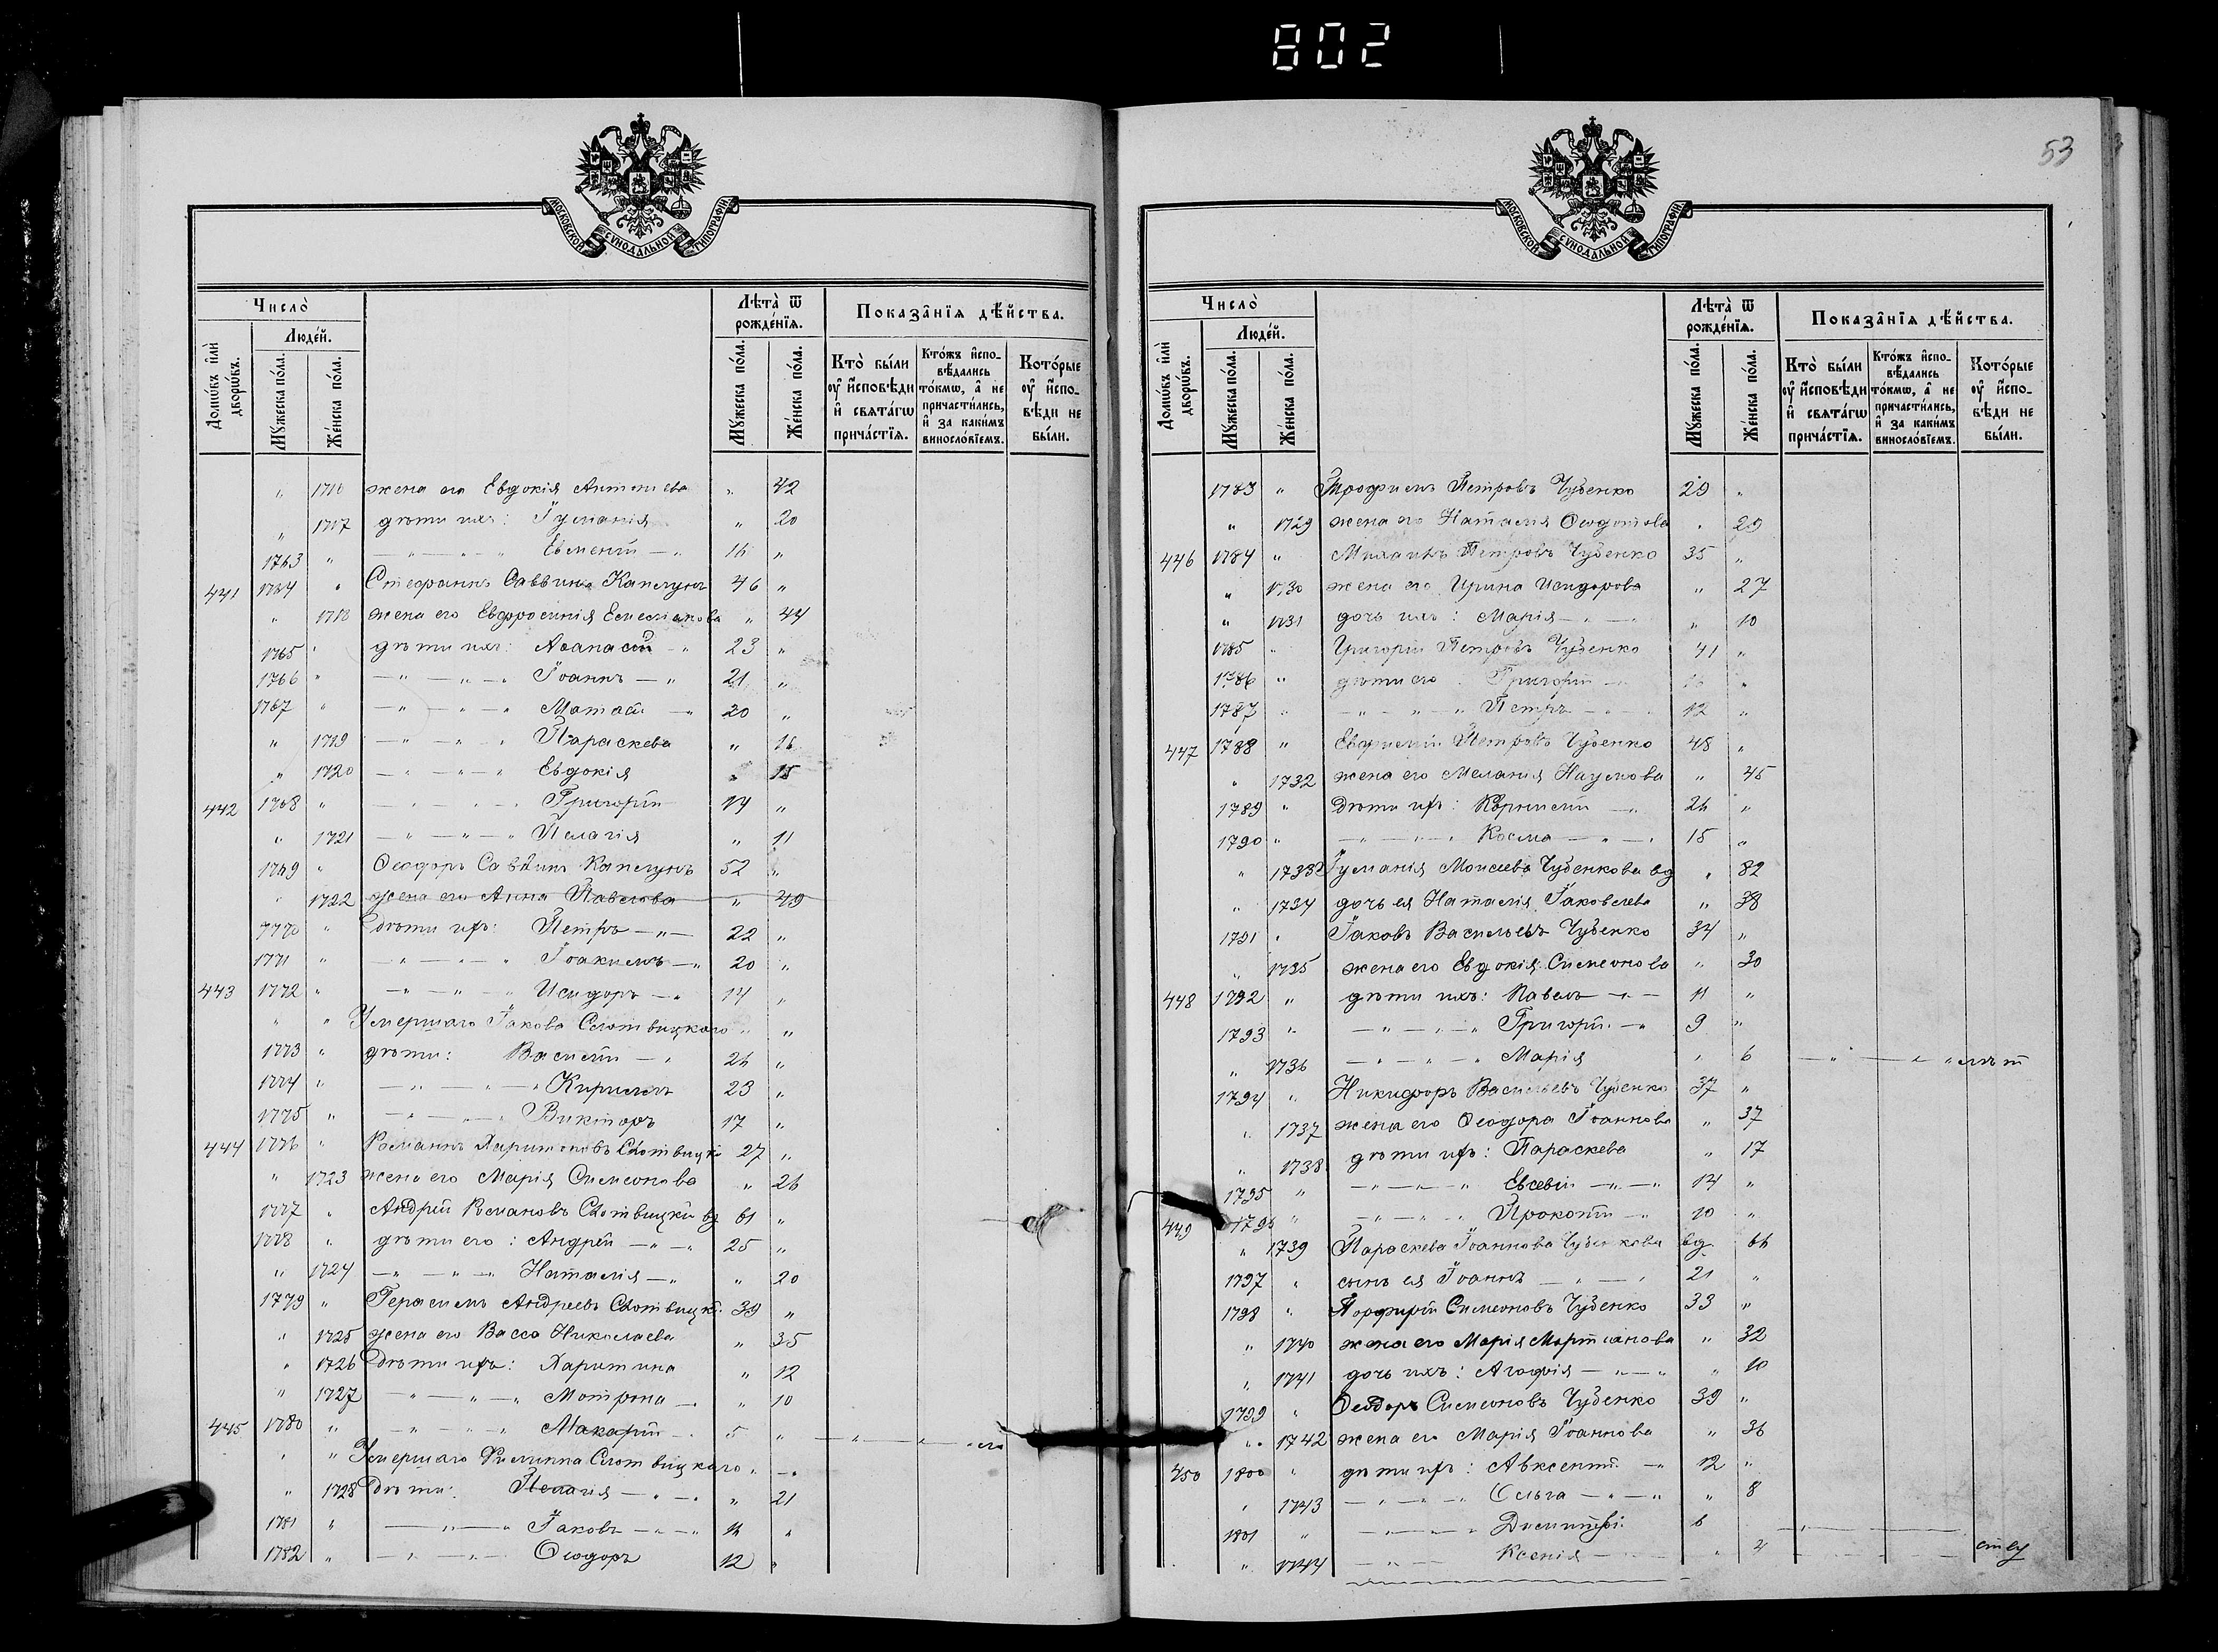 802
53
МОСКОВСКОЙ СУНОДАЛЬНОЙ ТИПОГРАФІИ
Число̀
Домѡ́въ и҆лѝ дворѡ́въ.
Люде́й.
Мꙋжеска по́ла.
Же́нска по́ла.
Лѣта̀ ѿ рожде́нїѧ.
Мꙋжеска по́ла.
Же́нска по́ла.
Показа̂нїѧ дѣ́йства.
Кто̀ бы́ли оу҆ и҆сповѣди и҆ свѧта́гѡ прича́стїѧ.
Кто́жъ и҆спо-вѣдались то́кмѡ, а҆ не причасти́лись, и҆ за каки́мъ винословїемъ.
Кото́рые оу҆ и҆спо-вѣди не бы́ли.
" 1716 жена его Евдокія Антоніева " 42
" 1717 дѣти ихъ: Іуліанія " 20
1763 " — " — " Евменій — " 16 "
441 1764 " Стефанъ Саввинъ Капелунъ 46 "
" 1718 жена его Евфросинія " 44
1765 " дѣти ихъ: Аѳанасій — " 23 "
1766 " — " — " — " Іоаннъ — " 21 "
1767 " — " — " — " Матѳій — " 20 "
" 1719 — " — " — " Параскева " 16
" 1720 — " — " — " Евдокія " 15
442 1768 " — " — " — " Григорій 14 "
" 1721 — " — " — " Пелагія " 11
1769 " Ѳеодоръ Саввинъ Капелунъ 52 "
" 1722 жена его Анна Павлова " 49
1770 " Дѣти ихъ: Петръ — " — 22 "
1771 " — " — " — " Іоакимъ — " 20 "
443 1772 " — " — " — " Исидоръ — " 14 "
" " Умершаго Іакова Слотвицкаго " "
1773 " дѣти: Василій — " 26 "
1774 " — " — " — " Кириллъ 23 "
1775 " — " — " — " Викторъ 17 "
444 1776 " Романъ Харитоновъ Слотвицкій 27 "
" 1723 жена его Марія Симеонова " 26
1777 " Андрей Романовъ Слотвицкій вд 61 "
1778 " дѣти его: Андрей — " — " 25 "
" 1724 — " — " — " Наталія — " " 20
1779 " Герасимъ Андреевъ Слотвицкій 39 "
" 1725 жена его Васса Николаева " 35
" 1726 Дѣти ихъ: Харитина " 12
" 1727 — " — " — " Мотрона — " " 10
445 1780 " — " — " — " Макарій — " 5 " — " — "
" " Умершаго Филиппа Слотвицкаго " — "
" 1728 Дѣти: Пелагія — " — " " 21
1781 " — " — " Іаковъ — " — " 16 "
1782 " — " — " — Ѳеодоръ 12 "
Число̀
Домѡ́въ и҆лѝ дворѡ́въ.
Люде́й.
Мꙋжеска по́ла.
Же́нска по́ла.
Лѣта̀ ѿ рожде́нїѧ.
Мꙋжеска по́ла.
Же́нска по́ла.
Показа̂нїѧ дѣ́йства.
Кто̀ бы́ли оу҆ и҆сповѣди и҆ свѧта́гѡ прича́стїѧ.
Кто́жъ и҆спо-вѣдались то́кмѡ, а҆ не причасти́лись, и҆ за каки́мъ винословїемъ.
Кото́рые оу҆ и҆спо-вѣди не бы́ли.
1783 " Трофимъ Петровъ Чубенко 29 "
" 1729 жена его Наталія Ѳеодотова " 29
446 1784 " Михаилъ Петровъ Чубенко 35 "
" 1730 жена его Ирина Исидорова " 27
" 1731 дочь ихъ: Марія — " — " " 10
1785 " Григорій Петровъ Чубенко 41 "
1786 " дѣти его: Григорій — " 16 "
1787 " — " — " — " Петръ — " 12 "
447 1788 " Евфимій Петровъ Чубенко 48 "
" 1732 жена его Меланія Наумова " 45
1789 " Дѣти ихъ: Корнилій — " 26 "
1790 " — " — " — " Косма — " — " 15 "
" 1733 Іуліанія Моисеева Чубенкова вд " 82
" 1734 дочь ея Наталія Іаковлева " 38
1791 " Іаковъ Васильевъ Чубенко 34 "
" 1735 жена его Евдокія Симеонова " 30
448 1792 " дѣти ихъ: Павелъ — " — 11 "
1793 " — " — " — " Григорій — " 9 "
" 1736 — " — " — " Марія " 6 — " — "
1794 " Никифоръ Васильевъ Чубенко 37 "
" 1737 жена его Ѳеодора Іоаннова " 37
" 1738 дѣти ихъ: Параскева " 17
1795 " — " — " — " Евсевій — " — " 14 "
449 1796 " — " — " — " Прокопій — " 10 "
" 1739 Параскева Іоаннова Чубенкова вд 66
1797 " сынъ ея Іоаннъ — " — " 21 "
1798 " Порфирій Симеоновъ Чубенко 33 "
" 1740 жена его Марія Мартіанова " 32
" 1741 дочь ихъ: Агафія — " — " " 10
1799 " Ѳеодоръ Симеоновъ Чубенко 39 "
" 1742 жена его Марія Іоаннова " 36
450 1800 " дѣти ихъ: Авксентій — " 12 "
" 1743 — " — " — " Ольга — " — " " 8
1801 " — " — " — " Димитрій 6
" 1744 — " — " Ксенія — " " 4